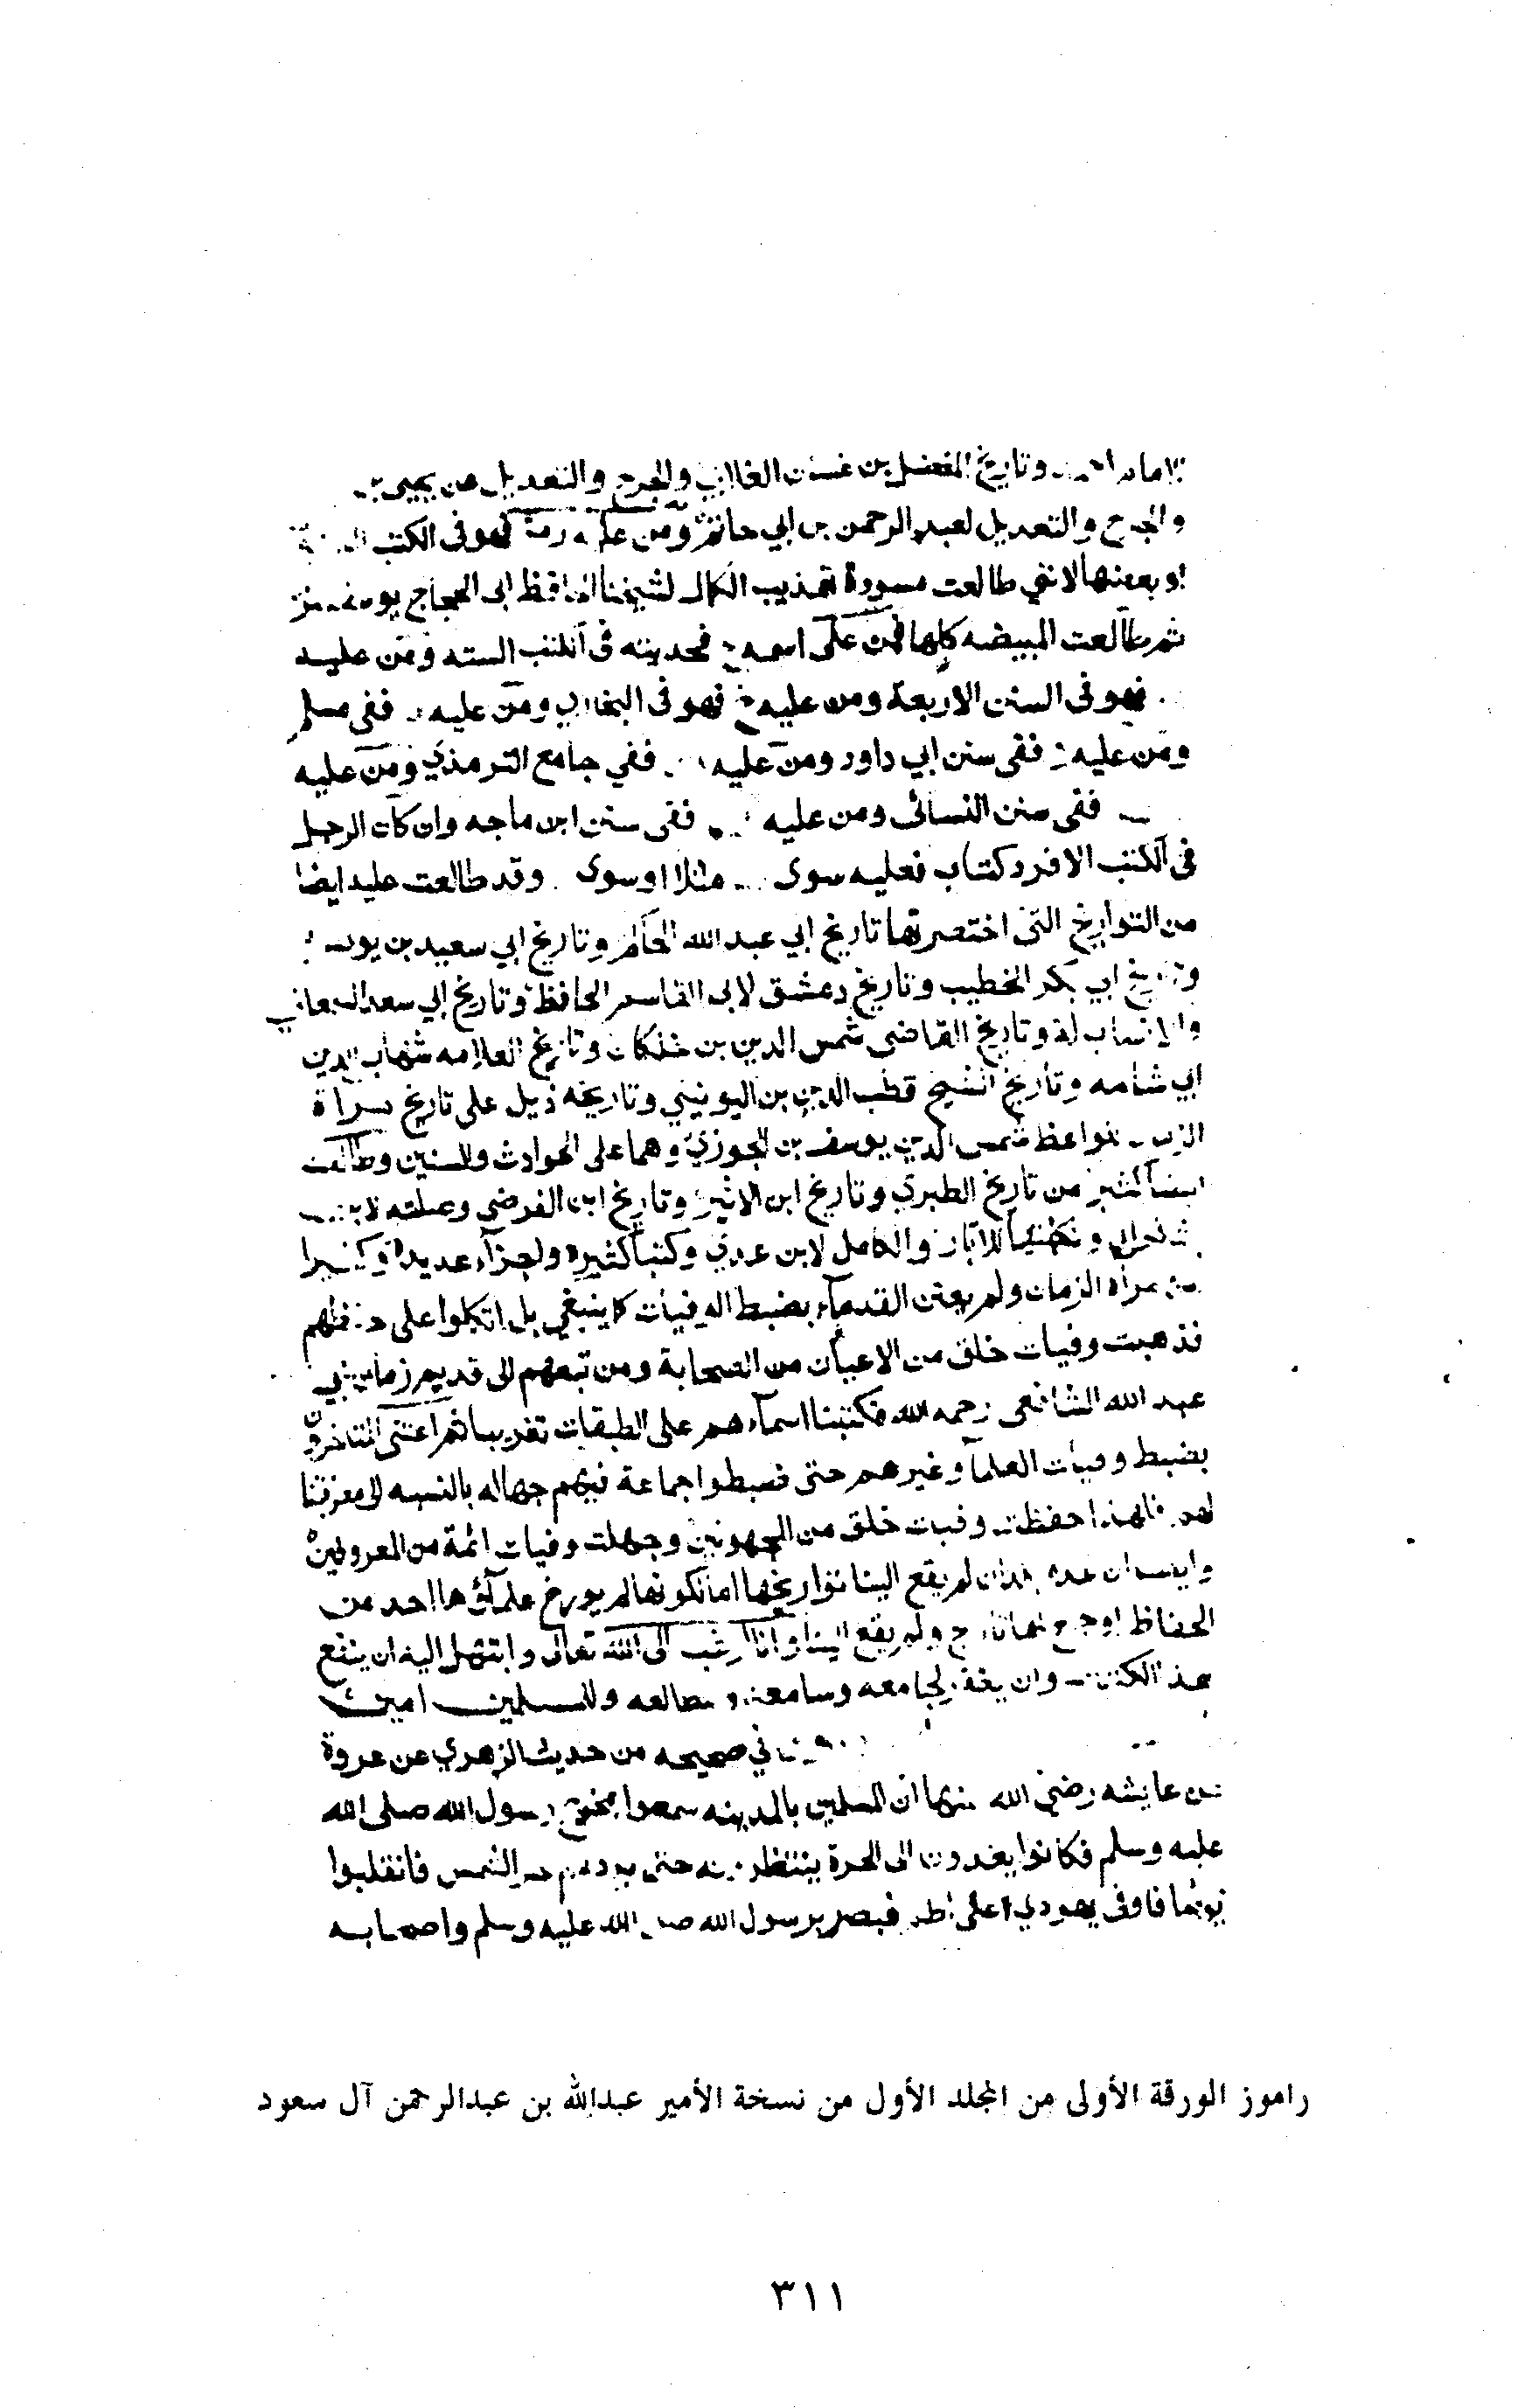 وتاريخ المفضل بن غسان الغلابي والجرح والتعديل عن يحيى
والجرح والتعديل لعبد الرحمن بن ابي حاتم ومن عليه رمز فهو في الكتب
او بعضها لانني طالعت مسودة تهذيب الكمال لشيخنا الحافظ ابي الحجاج يوسف
ثم طالعت المبيضه كلها فمن على اسمه فحديثه في الكتب السته ومن عليه
فهو في السنن الاربعة ومن عليه خ فهو في البخاري ومن عليه ففي مسلم
ومن عليه ففي سنن ابي داود ومن عليه ففي جامع الترمذي ومن عليه
ففي سنن النسائي ومن عليه ففي سنن ابن ماجه وان كان الرجل
في الكتب الا فرد كتاب فعليه سوى مثلا او سوى وقد طالعت عليه ايضا
من التواريخ التي اختصرتها تاريخ ابي عبد الله الحاكم وتاريخ ابي سعيد بن يونس
وتاريخ ابي بكر الخطيب وتاريخ دمشق لابي القاسم الحافظ وتاريخ ابي سعد السمعاني
والانساب له وتاريخ القاضي شمس الدين بن خلكان وتاريخ العلامه شهاب الدين
ابي شامه وتاريخ الشيخ قطب الدين بن اليونيني وتاريخه ذيل على تاريخ مرآة
الزمان للواعظ شمس الدين يوسف بن الجوزي وهما على الحوادث والسنين وطالعت
ايضا كثيرا من تاريخ الطبري وتاريخ ابن الاثير وتاريخ ابن الفرضي وصلته لابن
بشكوال وتكملتها للابار والكامل لابن عدي وكتبا كثيرة واجزاء عديدة وكثيرا
من مرآة الزمان ولم يعتن القدماء بضبط الوفيات كما ينبغي بل اتكلوا على حفظهم
فذهبت وفيات خلق من الاعيان من الصحابة ومن تبعهم الى قديم زمان ابي
عبد الله الشافعي رحمه الله فكتبنا اسماءهم على الطبقات تقريبا ثم اعتنى المتاخرون
بضبط وفيات العلما وغيرهم حتى ضبطوا جماعة فيهم جهاله بالنسبه الى معرفتنا
لهم فلهذا حفظت وفيات خلق من المجهولين وجهلت وفيات ائمة من المعروفين
وايضا ان عدة بلدان لم يقع الينا تواريخها اما لكونها لم يورخ علماؤها احد من
الحفاظ او جمع لها تاريخ ولم يقع الينا وانا ارغب الى الله تعالى وابتهل اليه ان ينفع
بهذا الكتاب وان يغفر لجامعه وسامعه ومطالعه وللمسلمين امين
في صحيحه من حديث الزهري عن عروة
عن عايشه رضي الله عنها ان المسلمين بالمدينه سمعوا بمخرج رسول الله صلى الله
عليه وسلم فكانوا يغدون الى الحرة ينتظرونه حتى يردهم حر الشمس فانقلبوا
يوما فاوفى يهودي على اطم فبصر برسول الله صلى الله عليه وسلم واصحابه
راموز الورقة الأولى من المجلد الأول من نسخة الأمير عبدالله بن عبدالرحمن آل سعود
٣١١